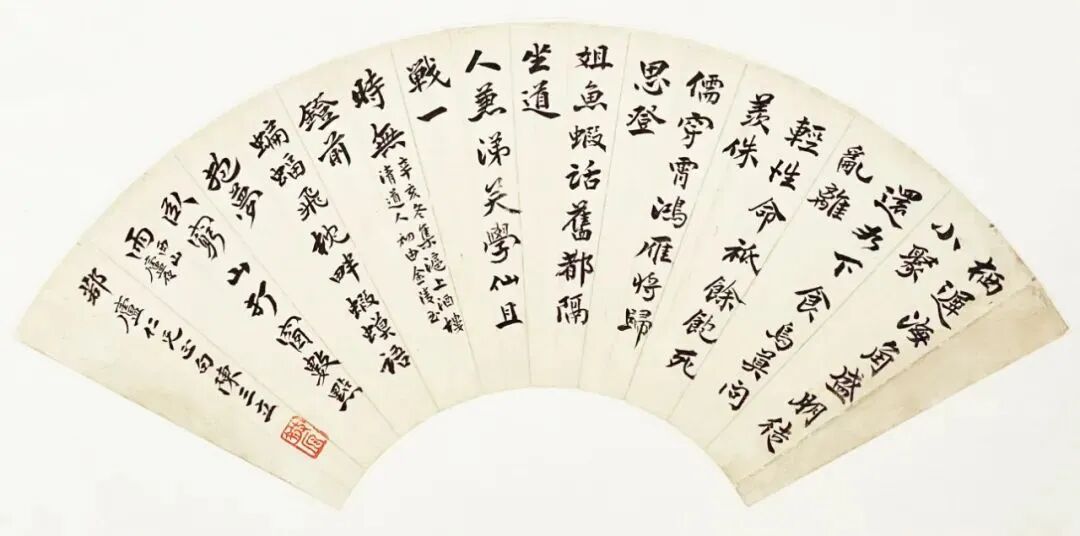 栖遲海角盛朋徒
小聚
還如下食烏莫問
亂離
輕性命祇餘飽死
羨侏
儒穿霄鴻雁將歸
思登
俎魚蝦話舊都隔
坐道
人兼涕笑學仙且
戰一
時無
辛亥冬集滬上酒樓
清道人初由金陵至
鐙前
蝙蝠飛枕畔蝦蟆語
抱夢
臥窮山打窗數點
雨
西山
廬夜
都廬仁兄正句陳三立